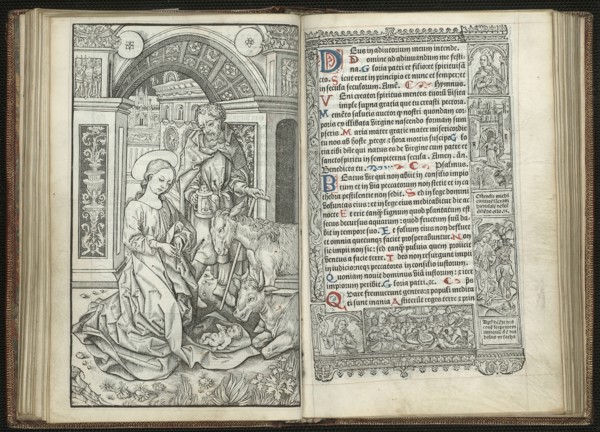 Deus in adiutorium meum intende.
Domine ad adiuuandum me festi
na. Gloria patri et filio et spiritui sa
cto. Sicut erat in principio et nunc et semper: et
in secula seculorum. Amē. Hymnus.
Veni creator spiritus mentes tuorū visita
imple superna gratia que tu creasti pectora.
Memēto salutis auctor qꝫ nostri quondam cor
poris ex illibata virgine nascendo formam sum
pseris. Maria mater gratie mater misericordie
tu nos ab hoste protege et hora mortis suscipe. Glo
ria tibi dñe qui natus es de virgine cum patre et
sancto spiritu in sempiterna secula. Amen. añ.
Benedicta tu. Psalmus.
Beatus vir qui non abiit in consilio impio
rum et in via peccatorum non stetit: et in ca
thedra pestilentie non sedit. Sed in lege domini
voluntas eius: et in lege eius meditabitur die ac
nocte. Et erit tanqꝫ lignum quod plantatum est
secus decursus aquarum: quod fructum suū da
bit in tempore suo. Et folium eius non defluet:
et omnia quecunqꝫ faciet prosperabuntur. Non
sic impii non sic: sed tanqꝫ puluis quem proiicit
ventus a facie terre. Ideo non resurgunt impii
in iudicio: neqꝫ peccatores in consilio iustorum.
Quoniam nouit dominus viā iustorum: et iter
impiorum peribit. Gloria patri. ec. ps
Quare fremuerunt gentes: et populi medita
ti sunt inania. Astiterunt reges terre et prin